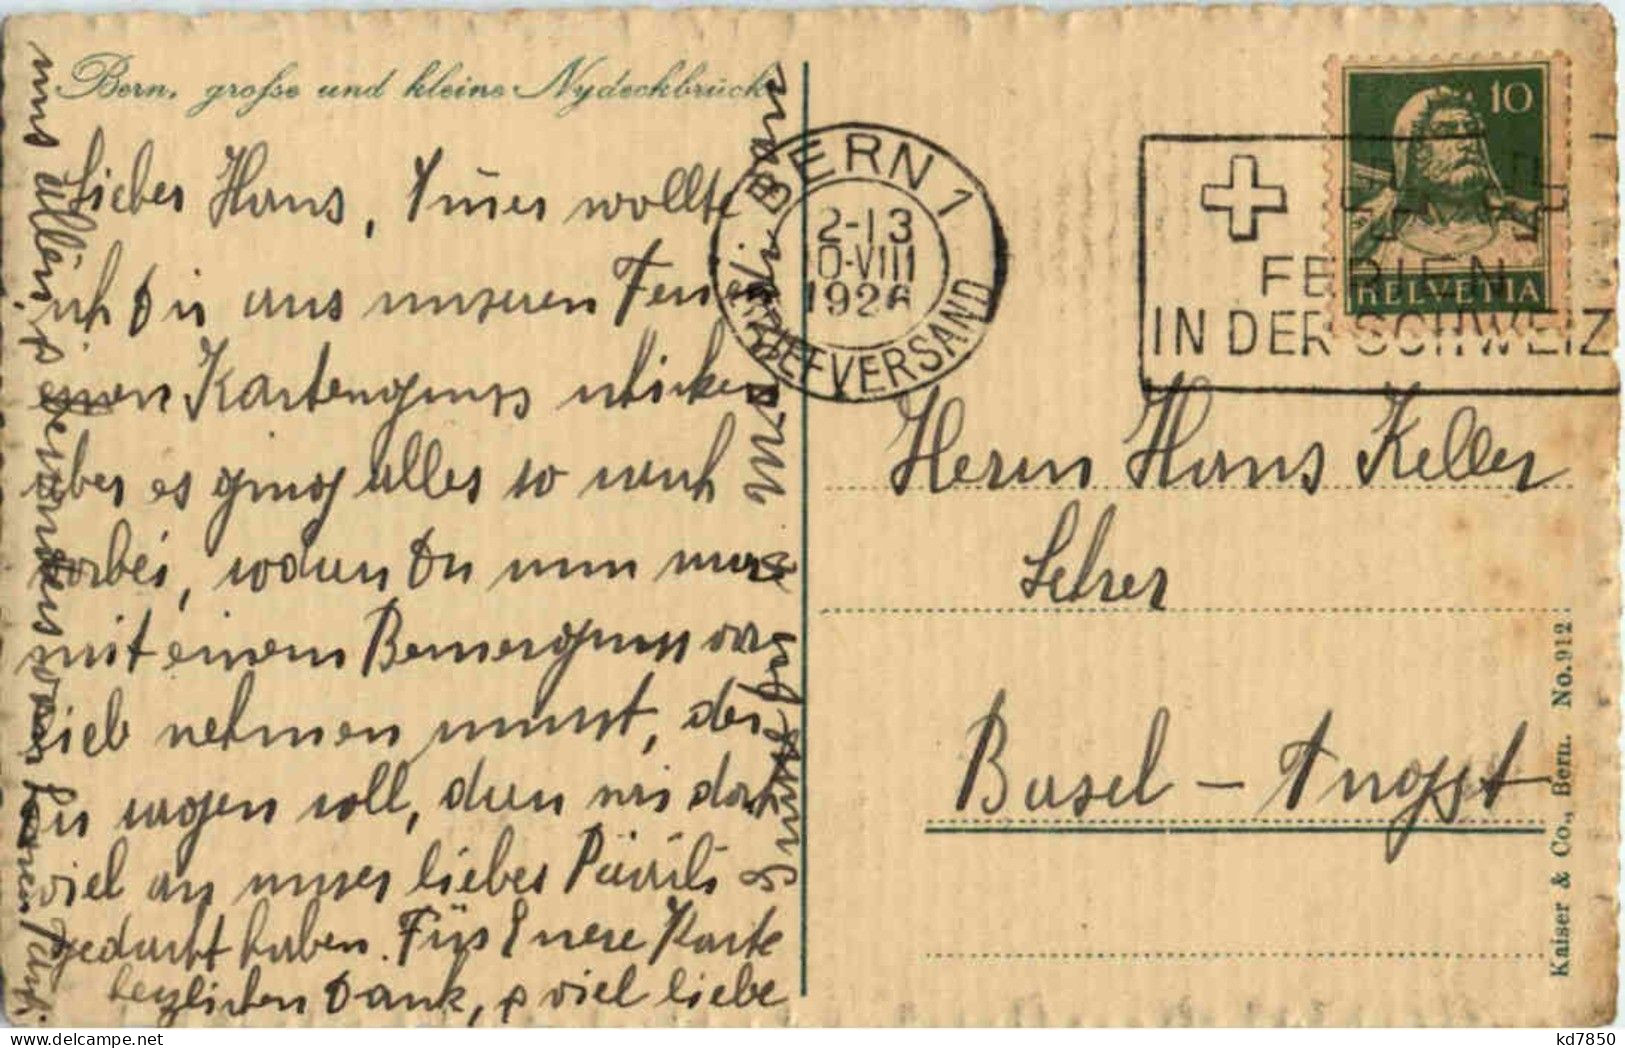 Bern, große und kleine Nydeckbrücke
Lieber Hans, wollte
ich Dir aus unseren Ferien
einen Kartengruss schicken
aber es ging alles so rasch
vorbei, sodass Du nun
mit einem Bernergruss vor
lieb nehmen musst, der
Dir sagen soll, dass wir doch
viel an unser liebes Päärli
gedacht haben. Für Euere Karte
herzlichen Dank, & viel liebe
BERN 1
12-13
10-VIII
1926
BRIEFVERSAND
FERIEN
IN DER SCHWEIZ
10
HELVETIA
Herrn Hans Keller
Lehrer
Basel - Augst
Kaiser & Co., Bern. No. 912
kd7850